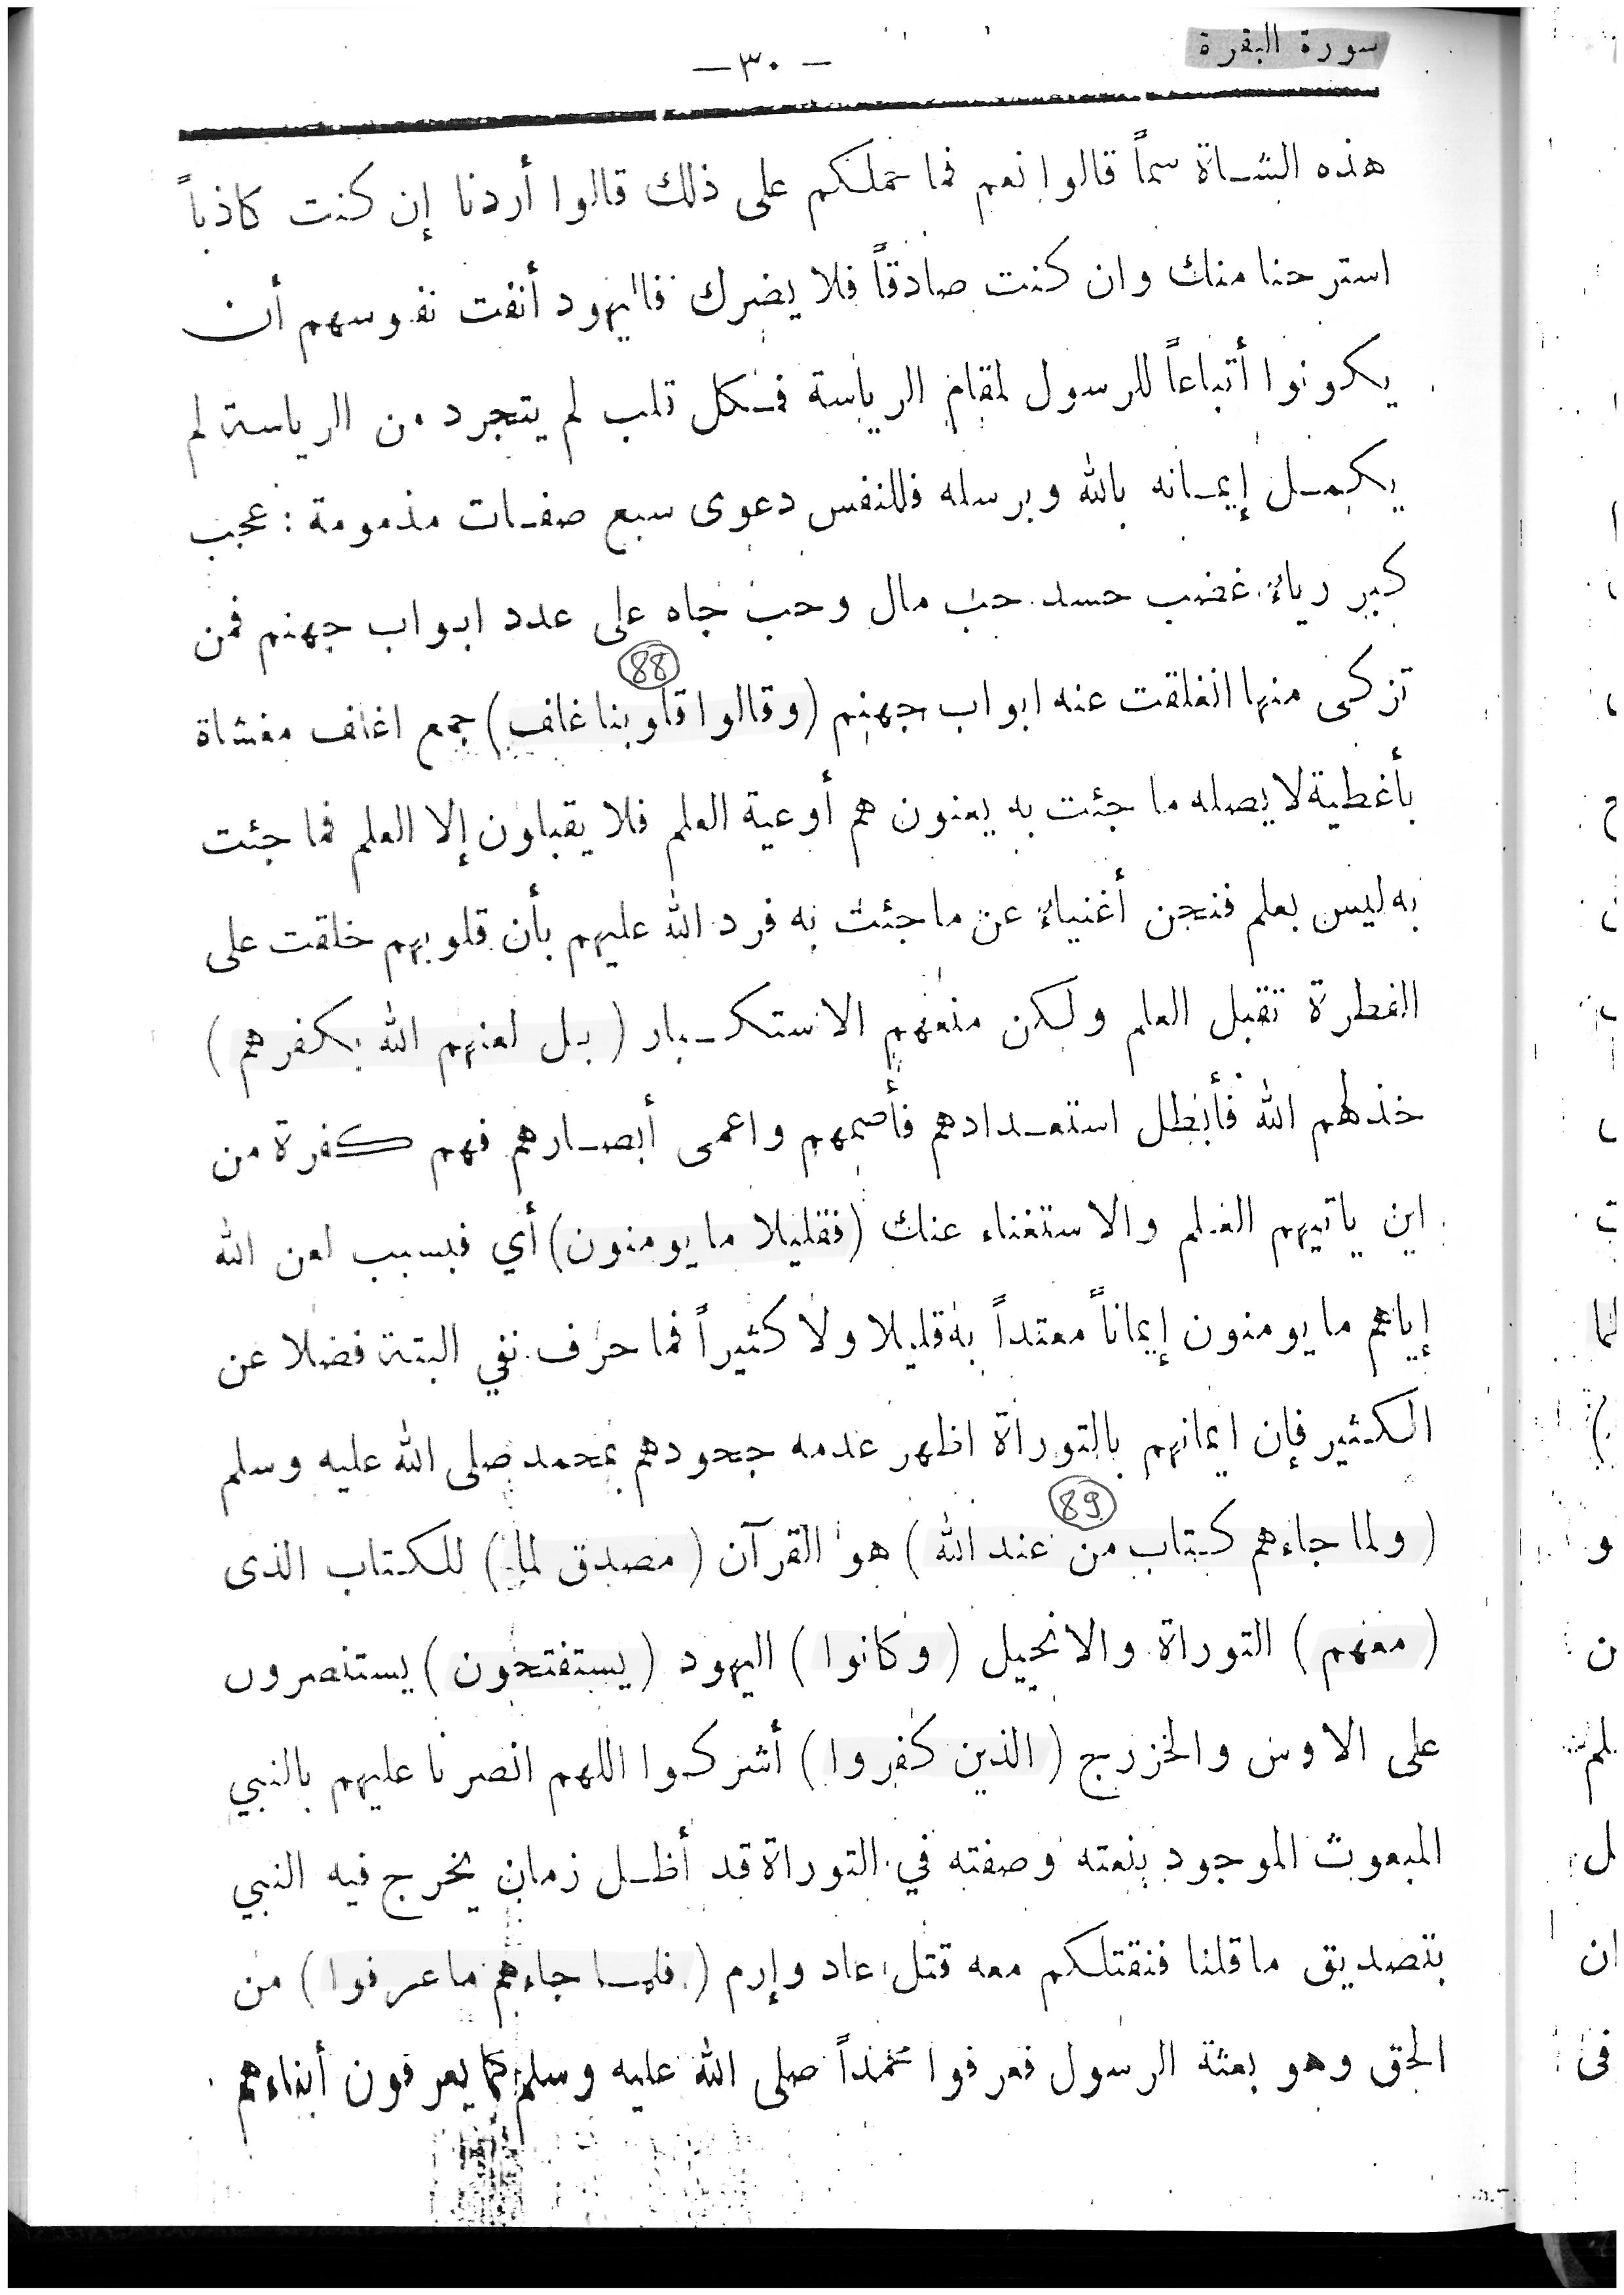 سورة البقرة
— ٣٠ —
هذه الشاة سماً قالوا نعم فما حملكم على ذلك قالوا أردنا إن كنت كاذباً
استرحنا منك وان كنت صادقاً فلا يضرك فاليهود أنفت نفوسهم أن
يكونوا أتباعاً للرسول لمقام الرياسة فكل قلب لم يتجرد من الرياسة لم
يكمل إيمانه بالله وبرسله فللنفس دعوى سبع صفات مذمومة : عجب
كبر رياء غضب حسد حب مال وحب جاه على عدد ابواب جهنم فمن
88
تزكى منها انغلقت عنه ابواب جهنم (وقالوا قلوبنا غلف) جمع اغلف مغشاة
بأغطية لا يصله ما جئت به يعنون هم أوعية العلم فلا يقبلون إلا العلم فما جئت
به ليس بعلم فنحن أغنياء عن ما جئت به فرد الله عليهم بأن قلوبهم خلقت على
الفطرة تقبل العلم ولكن منعهم الاستكبار ( بل لعنهم الله بكفرهم )
خذلهم الله فأبطل استعدادهم فأصمهم واعمى أبصارهم فهم كفرة من
اين ياتيهم العلم والاستغناء عنك (فقليلا ما يومنون) أي فبسبب لعن الله
إياهم ما يومنون إيماناً معتداً به قليلا ولا كثيراً فما حرف نفي البتة فضلا عن
الكثير فإن ايمانهم بالتوراة اظهر عدمه جحودهم بمحمد صلى الله عليه وسلم
89
( ولما جاءهم كتاب من عند الله ) هو القرآن ( مصدق لما ) للكتاب الذى
( معهم ) التوراة والانجيل ( وكانوا ) اليهود ( يستفتحون ) يستنصرون
على الاوس والخزرج ( الذين كفروا ) أشركوا اللهم انصرنا عليهم بالنبي
المبعوث الموجود بنعته وصفته في التوراة قد أظل زمان يخرج فيه النبي
بتصديق ما قلنا فنقتلكم معه قتل عاد وإرم ( فلما جاءهم ما عرفوا ) من
الحق وهو بعثة الرسول فعرفوا محمداً صلى الله عليه وسلم كما يعرفون أبناءهم